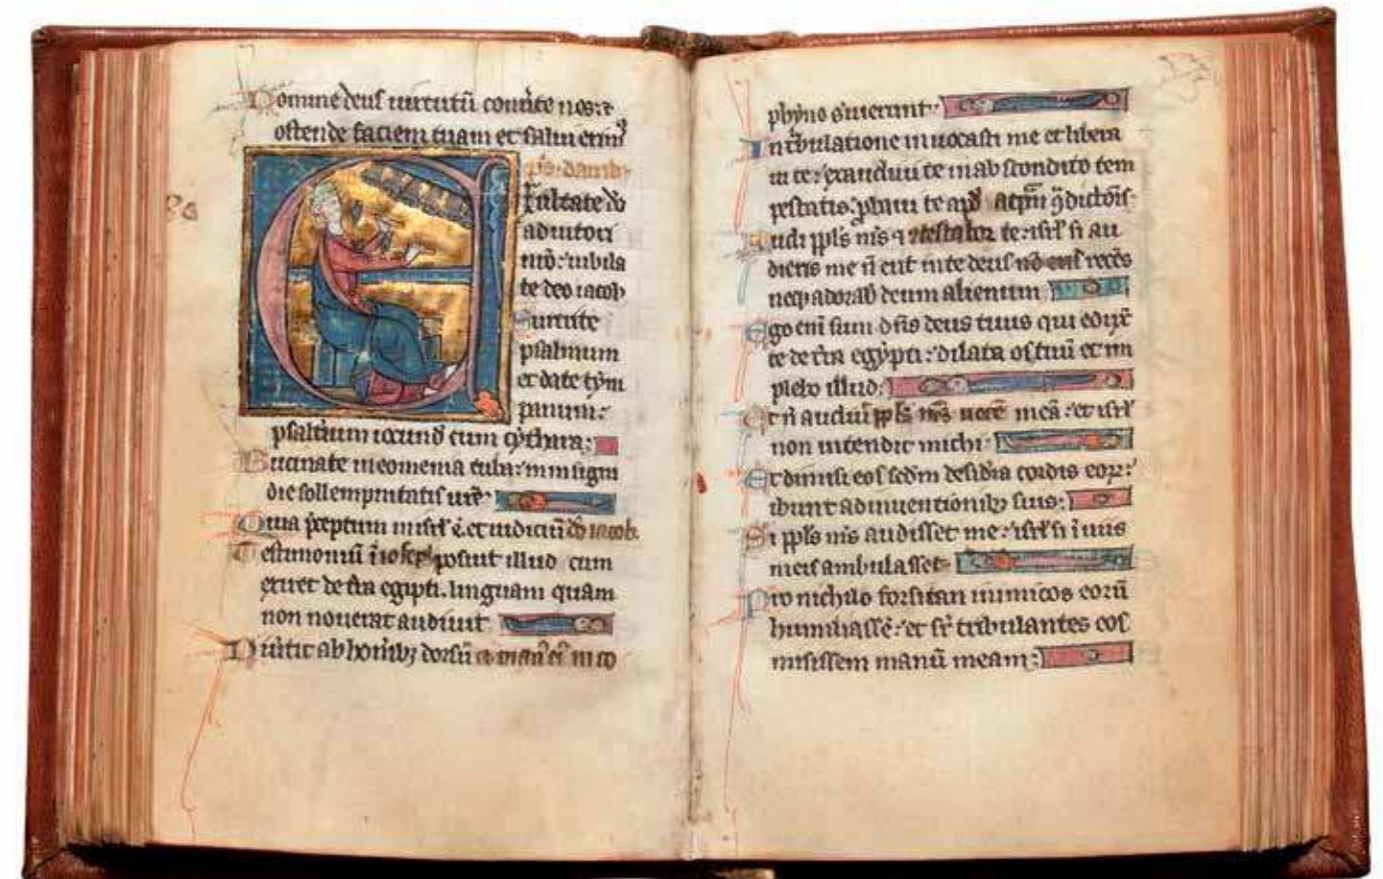 Domine deus uirtutū conu̾te nos: ⁊
ostende faciem tuam et salui erim⁹
ps. dauid
Exultate dō
adiutori
nrō: iubila
te deo iacob
Sumite
psalmum
et date tym
panum:
psalterium iocund cum cythara:
Bucinate in eomenia tuba: in insigni
die sollempnitatis ure
Quia p̄ceptum in isrl̄ ē. et iudiciū dō iacob.
Testimoniū ī ioseph posuit illud cum
exiret de tr̄a egipti. linguam quam
non nouerat audiuit
Diu̾tit ab hon̄ibꝫ dorsū man̄ ei⁹ in co
phyno s̾uierunt
In t̾bulatione inuocasti me et libera
ui te: exaudiui te in abscondito tem
pestatis: pbaui te apd̄ aqm̄ 9dictōis
Audi ppl̄s m̄s ⁊ testabor te: isrl̄ si au
dieris me n̄ erit in te deus recēs
neqꝫ adorab̄ deum alienum
Ego eni sum dn̄s deus tuus qui eduxi
te de tr̄a egypti: dilata os tuū et im
plebo illud:
Et n̄ audiui̇t ppl̄s m̄s uocē meā: et isrl̄
non intendit michi:
Et dimisi eos sed̄m desid̾ia cordis eoꝝ:
ibunt adinuentionibꝫ suis:
Si ppl̄s m̄s audisset me: isrl̄ si ī uiis
meis ambulasset
Pro nichilo forsitan inimicos eorū
humiliassē: et sr̄ tribulantes eos
misissem manū meam: